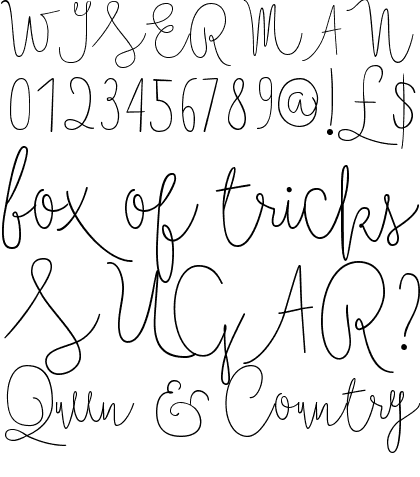 WYSERMAN
0123456789@!£$
fox of tricks
SUGAR?
Quun & Country